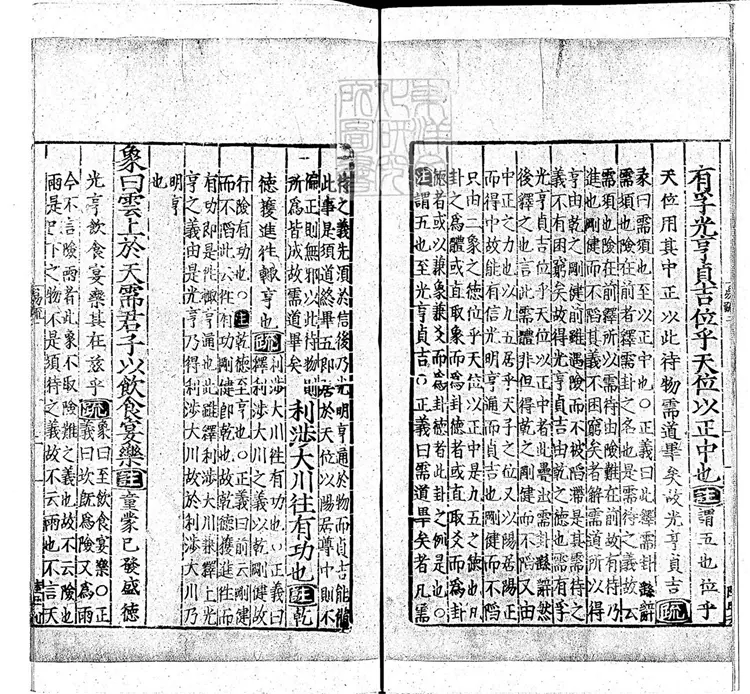 有孚光亨貞吉位乎天位以正中也註謂五也位乎
天位用其中正以此待物需道畢矣故光亨貞吉疏
彖曰需須也至以正中也○正義曰此釋需卦繇辭
需須也險在前者釋需卦之名也是需待之義故云
需須也險在前釋所以需待由險難在前故有待乃
進也剛健而不陷其義不困窮矣者解需道所以得
亨由乾之剛健前雖遇險而不被陷滯是其需待之
義不有困窮矣故得光亨貞吉由乾之德也需有孚
光亨貞吉位乎天位以正中者此疊出需卦繇辭然
後釋之也言此需體非但得乾之剛健而不陷又由
中正之力也以九五居乎天子之位又以陽居陽正
而得中故能有信光明亨通而貞吉也剛健而不陷
只由二象之德位乎天位以正中是九五之德也凡
卦之爲體或直取象而爲卦德者或直取爻而爲卦
德者或以兼象兼爻而爲卦德者此卦之例是也○
註謂五也至光亨貞吉○正義曰需道畢矣者凡需
待之義先須於信後乃光明亨通於物而貞吉能備
此事是須道終畢五即居於天位以陽居尊中則不
偏正則無邪以此待物則
所爲皆成故需道畢矣利涉大川往有功也註乾
德獲進往輒亨也疏利涉大川往有功也○正義曰
釋利涉大川之義以乾剛健故
行險有功也○註乾德至亨也○正義曰前云剛健
而不陷此云往有功剛健即乾也故乾德獲進往而
有功即是往輒亨通也此雖釋利涉大川兼釋上光
亨之義由是光亨乃得利涉大川故於利涉大川乃
明亨
也
象曰雲上於天需君子以飲食宴樂註童蒙已發盛德
光亨飲食宴樂其在茲乎疏象曰至飲食宴樂○正
義曰坎既爲險又爲雨
今不言險雨者此象不取險難之義也故不云險也
雨是已下之物不是須待之義故不云雨也不言天